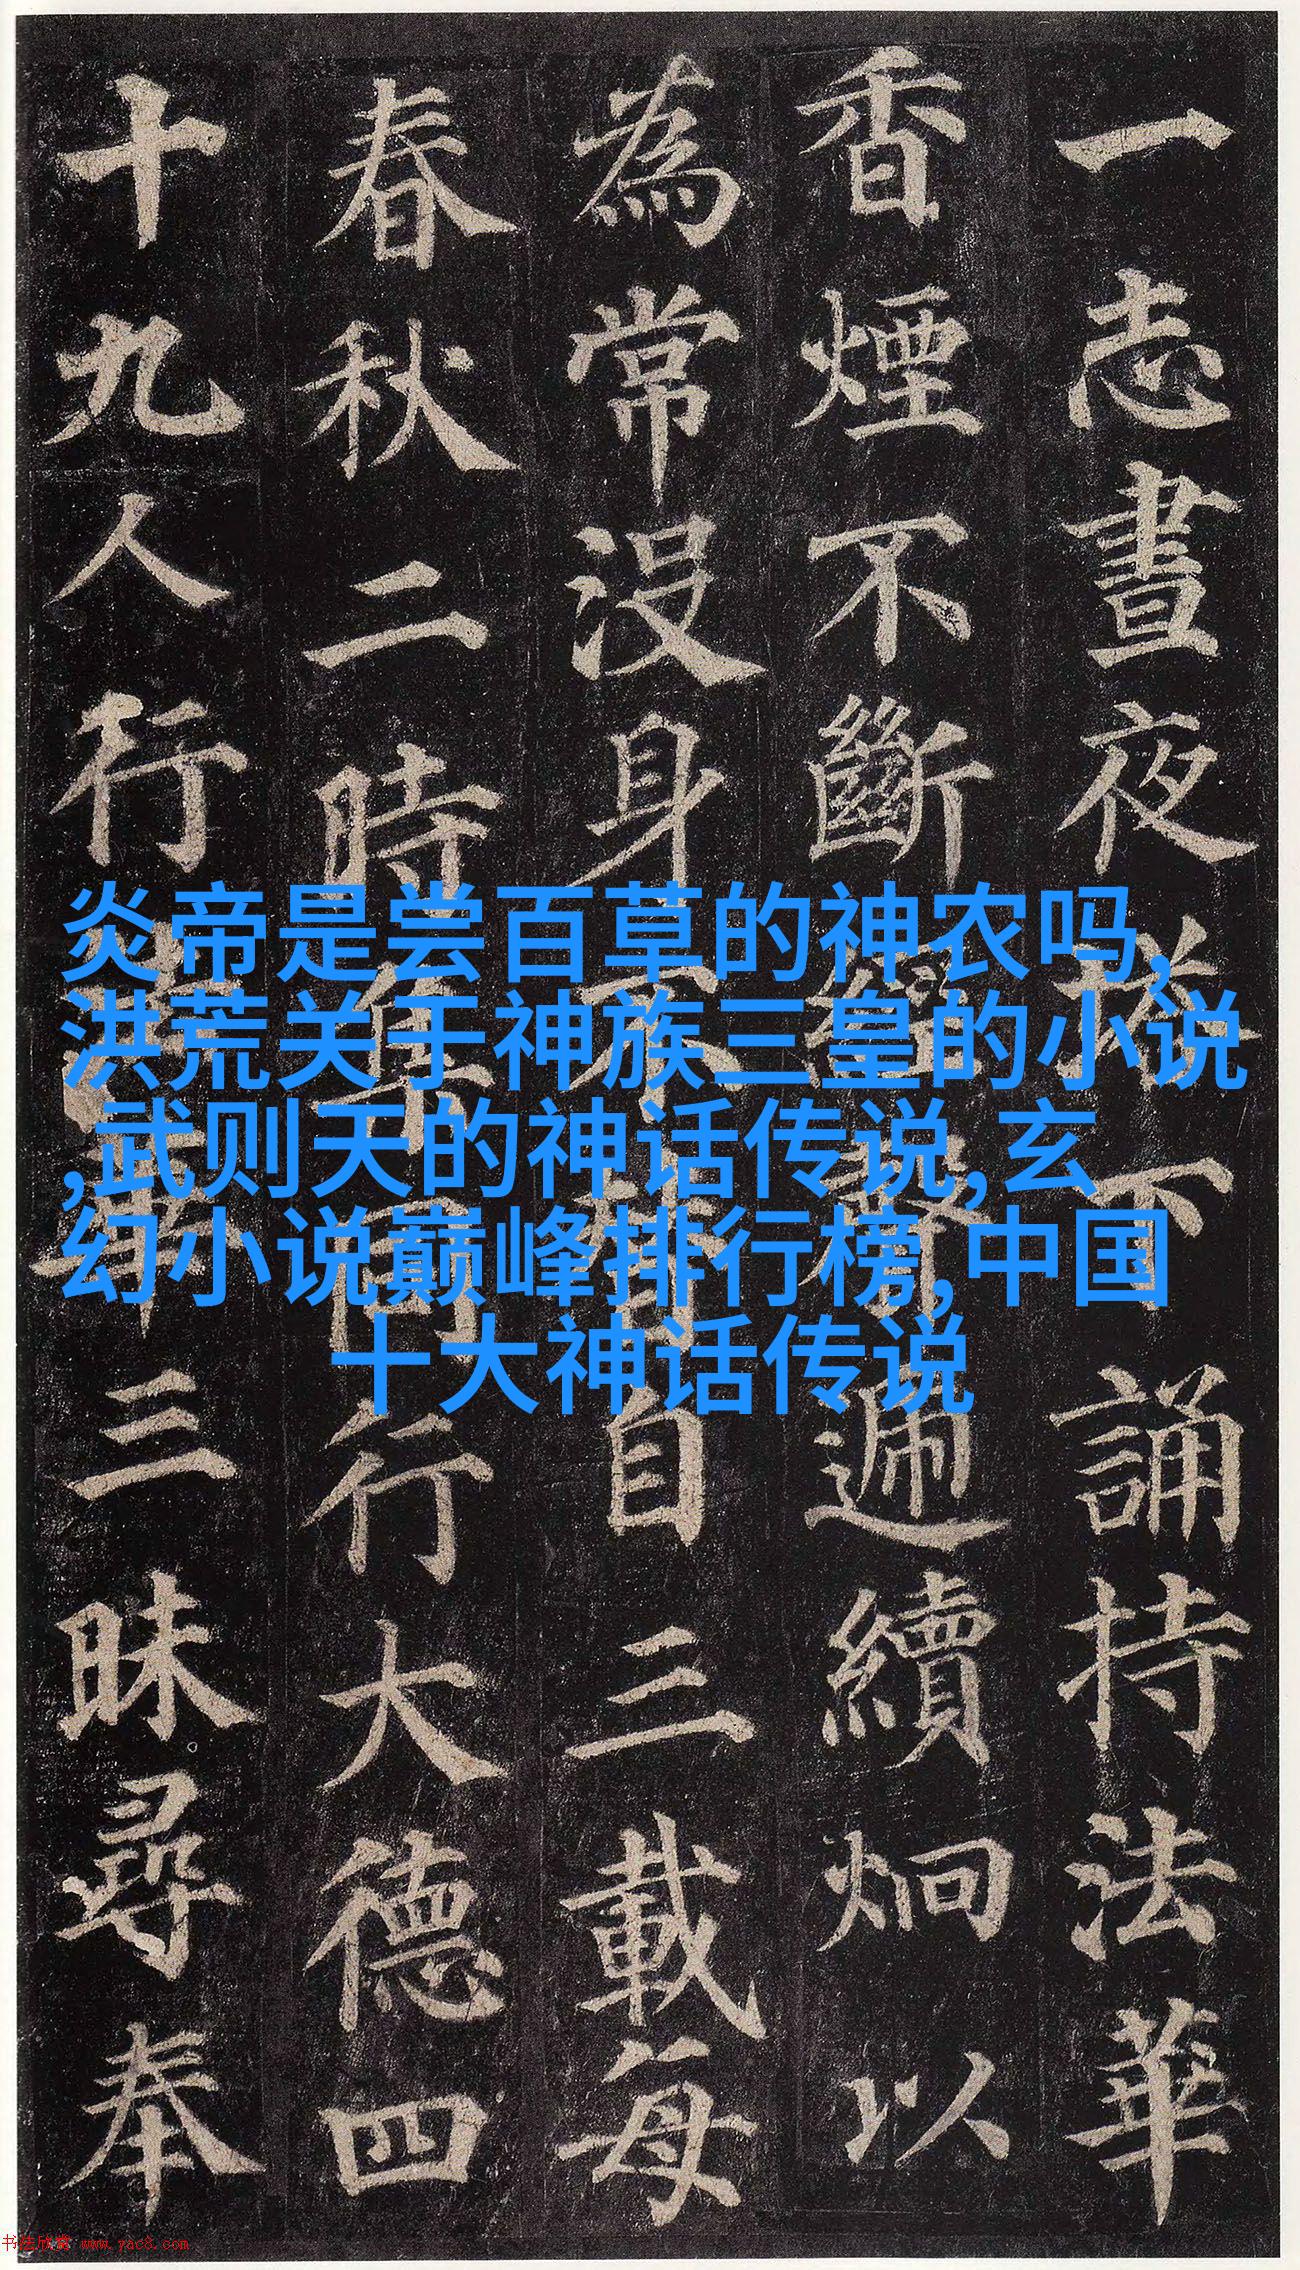 一志晝夜塔下誦持法華
香煙不斷經聲遞續炯以
為常沒身不替自三載每
春秋二時集同行大德四
十九人行法華三昧尋奉
炎帝是尝百草的神农吗,
洪荒关于神族三皇的小说
,武则天的神话传说,玄
幻小说巅峰排行榜,中国
十大神话传说
书法欣赏 www.yac8.com